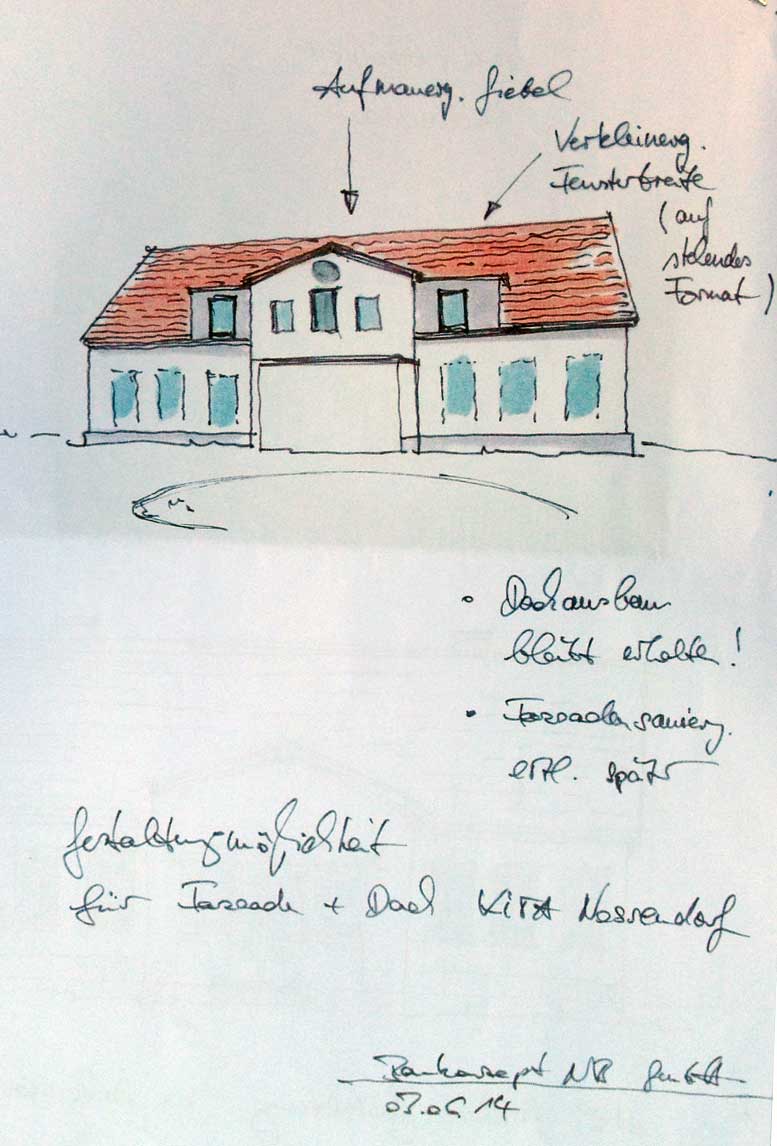 Aufmauerg. Giebel
Verkleinerg.
Fensterbreite
(auf
stehendes
Format)
• Dachausbau
bleibt erhalten!
• Fassadensanierg.
evtl. später
Gestaltungsmöglichkeit
für Fassade + Dach KITA Nossendorf
Baukonzept NB GmbH
03.06.14